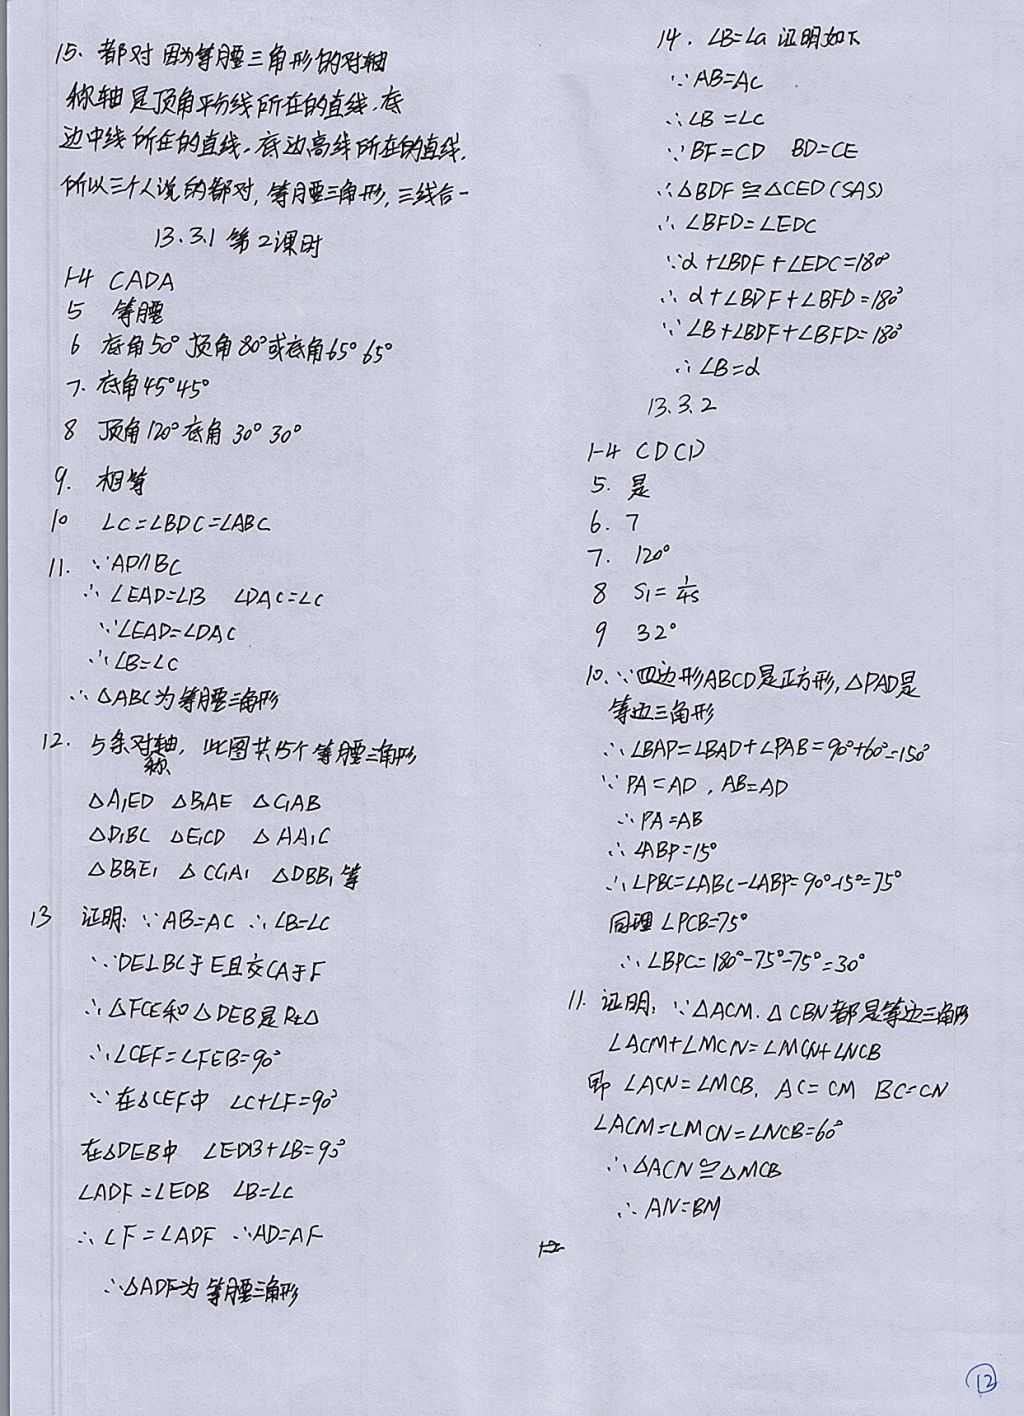 15. 都对 因为等腰三角形的对轴
称轴是顶角平分线所在的直线.底
边中线所在的直线.底边高线所在的直线.
所以三个人说的都对,等腰三角形,三线合一
13.3.1 第2课时
1-4 CADA
5 等腰
6 底角50° 顶角80°或底角65° 65°
7. 底角45°45°
8 顶角120°底角 30° 30°
9. 相等
10 ∠C=∠BDC=∠ABC
11. ∵AD//BC
∴∠EAD=∠B ∠DAC=∠C
∵∠EAD=∠DAC
∴∠B=∠C
∴△ABC为等腰三角形
12. 5条对称轴, 此图共15个等腰三角形
△A₁ED △B₁AE △C₁AB
△D₁BC △E₁CD △AA₁C
△BB₁E₁ △CC₁A₁ △DBB₁等
13 证明: ∵AB=AC ∴∠B=∠C
∵DE⊥BC于E且交CA于F
∴△FCE和△DEB是Rt△
∴∠CEF=∠FEB=90°
∵在△CEF中 ∠C+∠F=90°
在△DEB中 ∠EDB+∠B=90°
∠ADF=∠EDB ∠B=∠C
∴∠F=∠ADF ∴AD=AF
∴△ADF为等腰三角形
14. ∠B=∠a 证明如下
∵AB=AC
∴∠B=∠C
∵BF=CD BD=CE
∴△BDF≌△CED(SAS)
∴∠BFD=∠EDC
∵α+∠BDF+∠EDC=180°
∴α+∠BDF+∠BFD=180°
∵∠B+∠BDF+∠BFD=180°
∴∠B=α
13.3.2
1-4 CDCD
5. 是
6. 7
7. 120°
8 S₁=1/4S
9 32°
10. ∵四边形ABCD是正方形,△PAD是
等边三角形
∴∠BAP=∠BAD+∠PAB=90°+60°=150°
∵PA=AD,AB=AD
∴PA=AB
∴∠ABP=15°
∴∠PBC=∠ABC-∠ABP=90°-15°=75°
同理∠PCB=75°
∴∠BPC=180°-75°-75°=30°
11. 证明: ∵△ACM.△CBN都是等边三角形
∠ACM+∠MCN=∠MCN+∠NCB
即 ∠ACN=∠MCB. AC=CM BC=CN
∠ACM=∠MCN=∠NCB=60°
∴△ACN≌△MCB
∴AN=BM
12
12